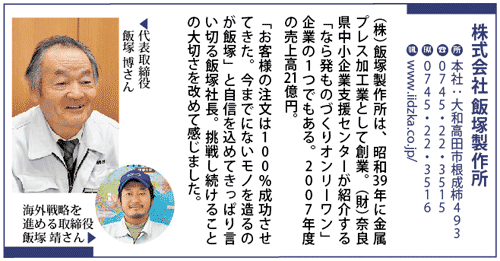 株式会社 飯塚製作所
所 本社:大和高田市根成柿493
☎ 0745・22・3515
0745・22・3516
www.iidzka.co.jp/
(株)飯塚製作所は、昭和39年に金属
プレス加工業として創業。(財)奈良
県中小企業支援センターが紹介する
「なら発ものづくりオンリーワン」
企業の1つでもある。2007年度
の売上高21億円。
「お客様の注文は100%成功させ
てきた。今までにないモノを造るの
が飯塚」と自信を込めてきっぱり言
い切る飯塚社長。挑戦し続けること
の大切さを改めて感じました。
◀代表取締役
飯塚 博さん
海外戦略を
進める取締役
飯塚 靖さん▶